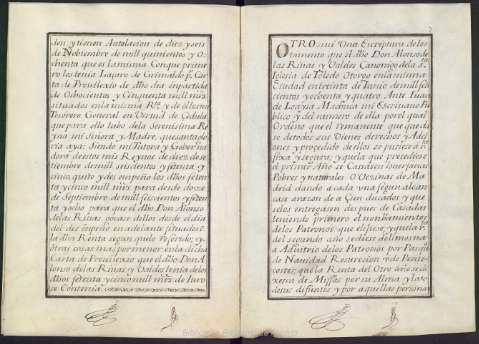 den y tienen Antelacion de diez y seis
de Nobiembre de mill quinientos y O-
chenta que es la misma Con que prime-
ro los tenia Lazaro de Grimaldo por Car-
ta de Previlexio de Albo dia en partida
de Ochocientos y Cinquenta mill mrs
situados en la misma Rta y de el dicho
Thesorero General en Virtud de Cedula
que para ello hubo de la Serenissima Re-
yna mi Señora y Madre, que santa glo-
ria aya; Siendo mi Tutora y Governa
dora de estos mis Reynos de diez de
tiembre de mill seiscientos y setenta y
quito y des empeño los dichos seten-
ta y cinco mill mrs para desde doze
de Septiembre de mill seiscientos y seten-
ta y ocho para que el dicho Don Alonso
de las Rivas gozase dellos desde el dia
del des empeño en adelante situados
la dicha Renta segun que lo referido, y
otras cosas mas por menor en la dicha
Carta de Previlexio que el dicho Don A-
lonso de las Rivas y Valdes tenia de los
dichos setenta y cinco mill mrs de Juro
se Contenia
OTRO si mi Una Escriptura de tes-
tamento que el dicho Don Alonso de
las Rivas y Valdes Canonigo de la Sta
Iglesia de Toledo Otorgo en la misma
Ciudad en treinta de Junio de mill sei-
cientos y ochenta y quatro Ante Juan
de Loaysa Machuca mi Escrivano Pu-
blico y del numero de ella por el qual
Ordeno que el remanente que queda
se de todos sus Vienes derechos y Ac-
iones y procedido de ellos se pusiese a
fixa y segura; y que la que procediese
el primer Año se Casasen huerfanas
Pobres y naturales O Vezinas de Ma-
drid dando a cada una segun alcan
case a razon de a Cien ducados y que
se los entregaran despues de Casadas
teniendo primero el nombramiento
de los Patronos que elixio; y que la
del segundo año se diese de limosna
a Adbitrio de los Patronos por Pascua
de Navidad Resurecion de Pente-
costes; que la Renta del Otro año se di-
xesen de Missas por su Alma, y las
de sus difuntos y por aquellas personas